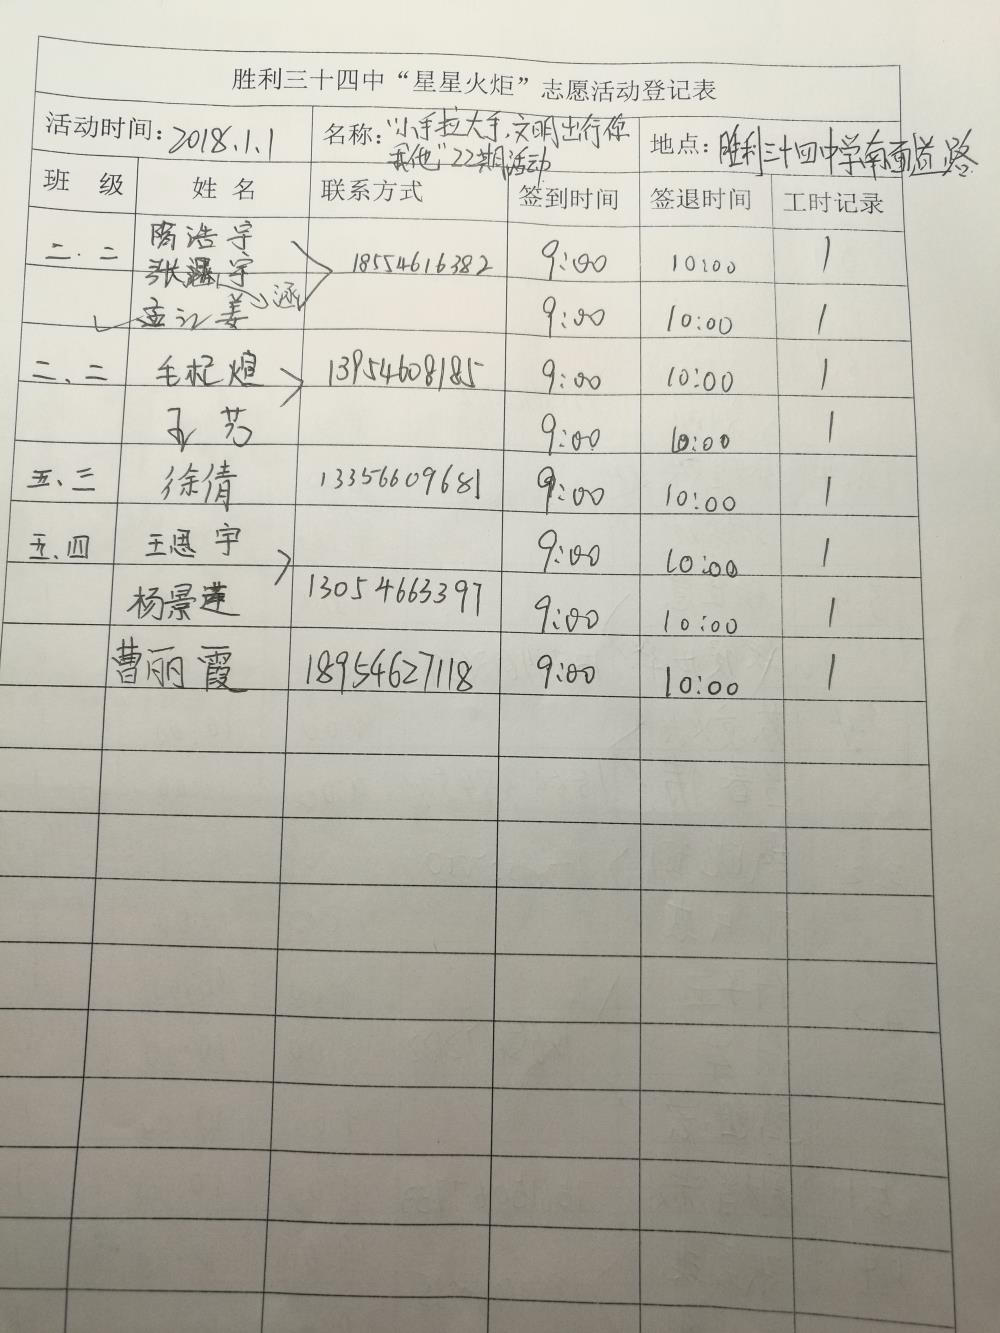 胜利三十四中“星星火炬”志愿活动登记表
活动时间：2018.1.1 名称：“小手拉大手，文明出行你 地点：胜利三十四中学南面道路
我他”22期活动
班 级 姓 名 联系方式 签到时间 签退时间 工时记录
二.二 隋浩宇 18554616382 9:00 10:00 1
张 宇 涵
孟 姜 9:00 10:00 1
二、二 毛杞煊 13954608185 9:00 10:00 1
芳 9:00 10:00 1
五、三 徐倩 13356609681 9:00 10:00 1
五、四 王思宇 9:00 10:00 1
杨景莲 13054663397 9:00 10:00 1
曹丽霞 18954627118 9:00 10:00 1